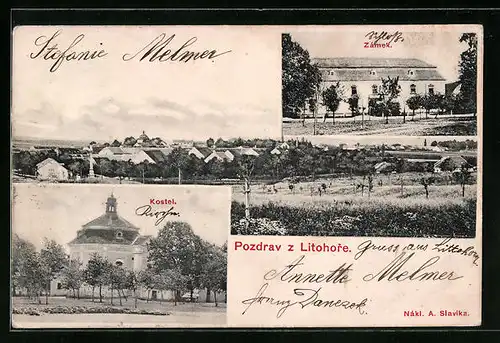 Stefanie Melmer
Schloß.
Zámek.
Kostel.
Kirche.
Pozdrav z Litohoře.
Gruss aus Littohorn
Annette Melmer
Fanny Danczek
Nákl. A. Slavika.